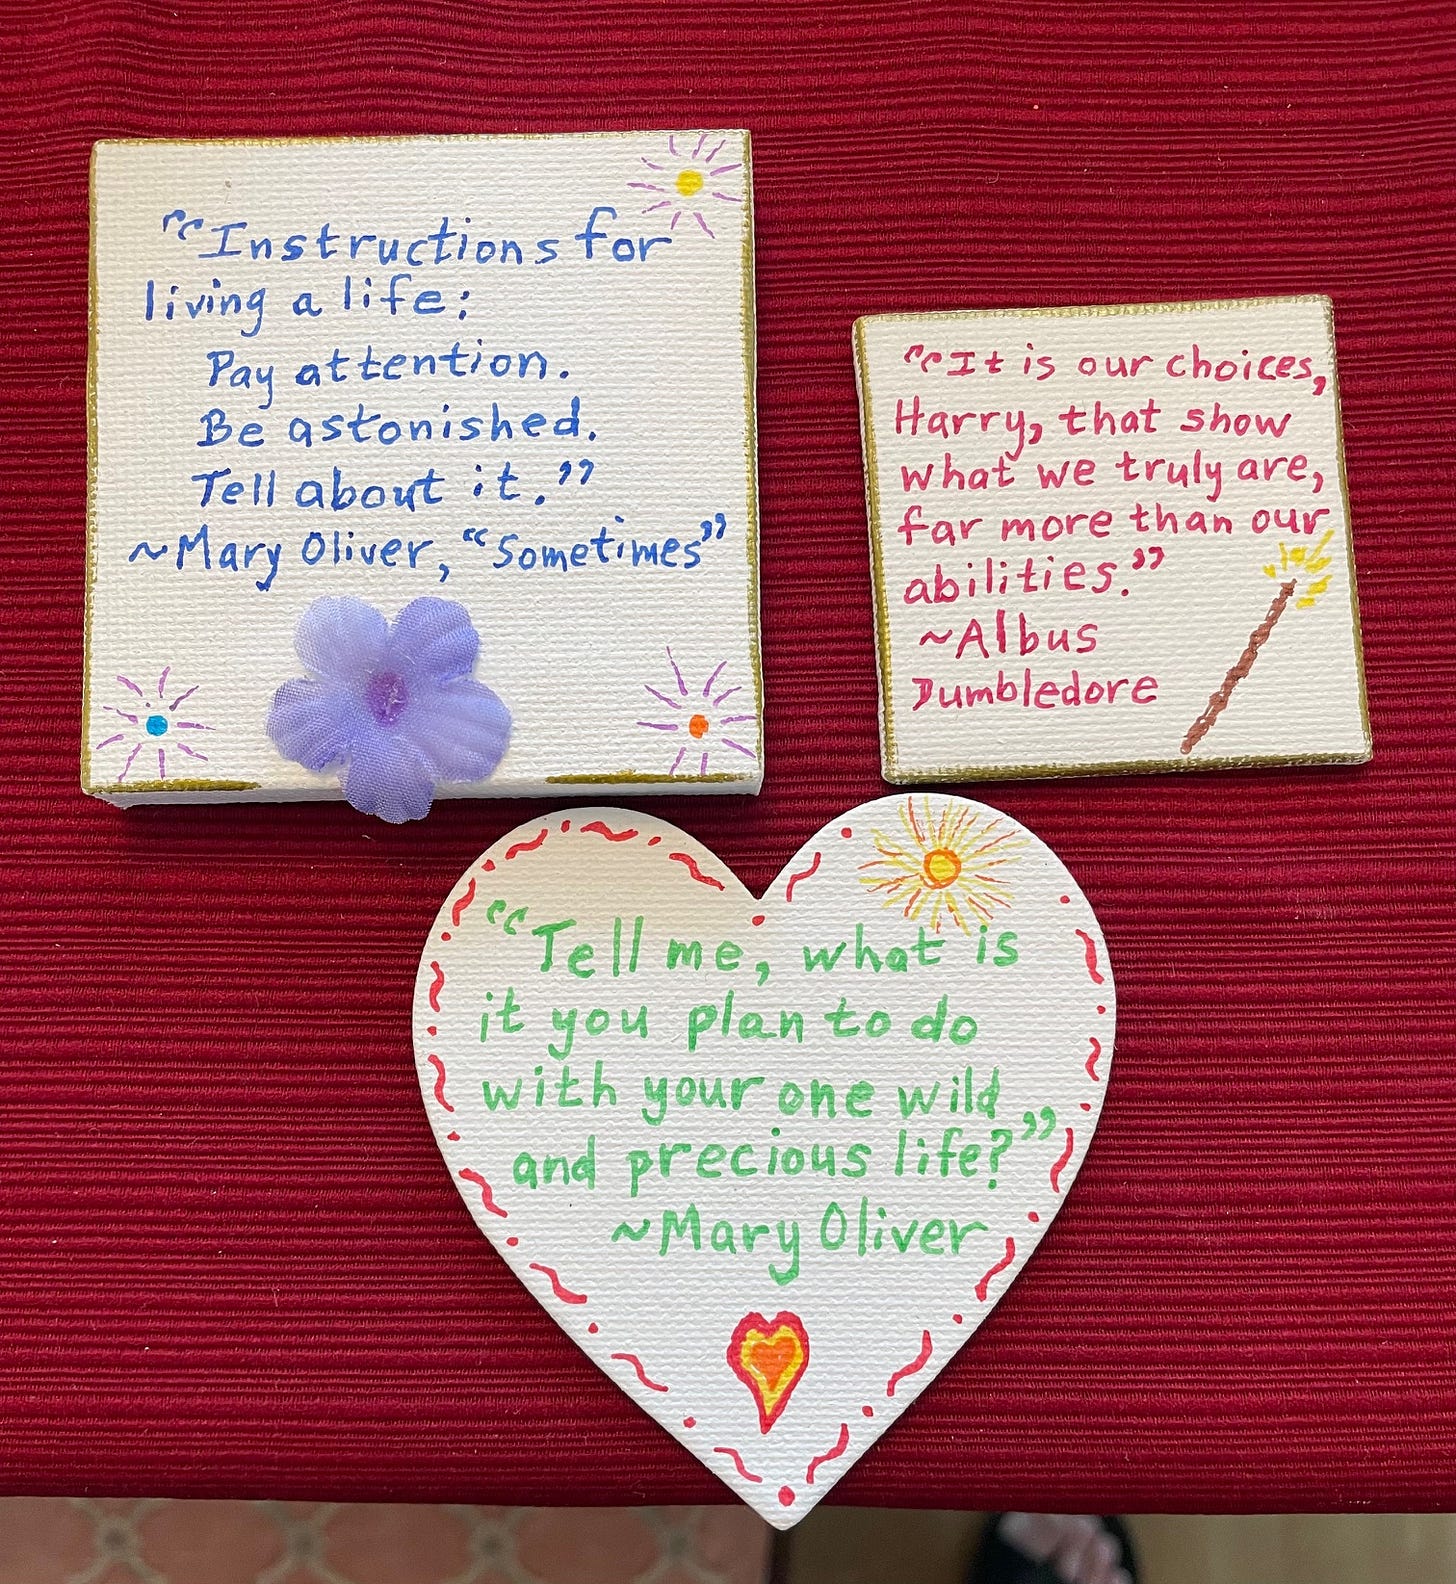 “Instructions for
living a life:
Pay attention.
Be astonished.
Tell about it.”
~Mary Oliver, “Sometimes”
“It is our choices,
Harry, that show
what we truly are,
far more than our
abilities.”
~Albus
Dumbledore
“Tell me, what is
it you plan to do
with your one wild
and precious life?”
~Mary Oliver